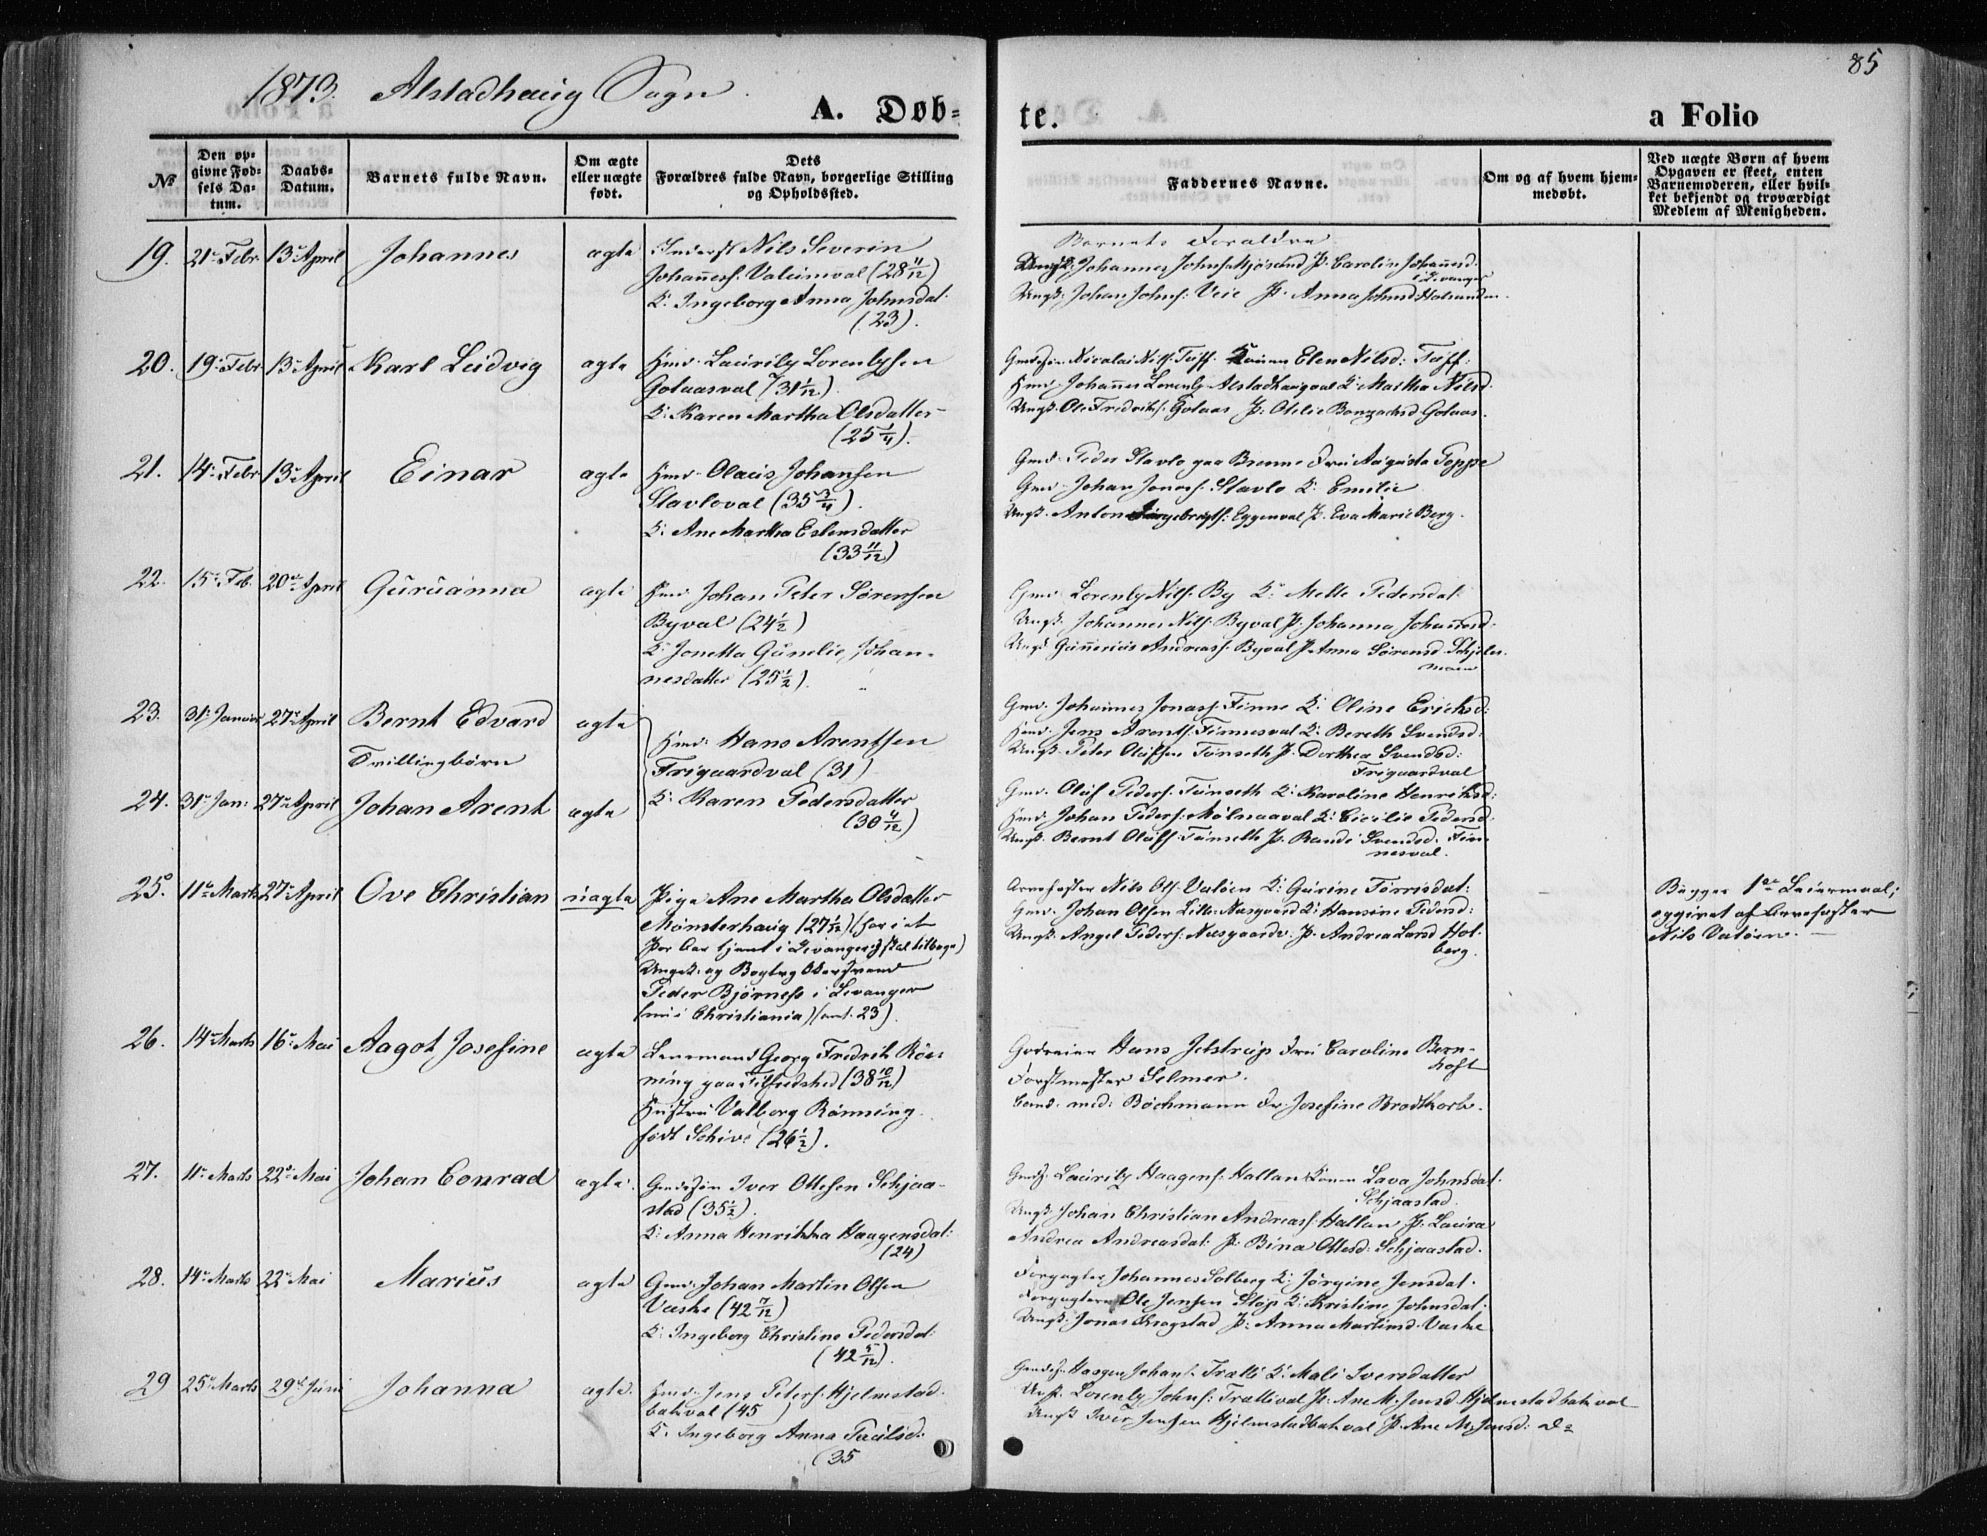 1873. Alstadhaug Sogn.
85
A. Døb-
te.
a Folio
№
Den op-
givne Fød-
sels Da-
tum.
Daabs-
Datum.
Barnets fulde Navn.
Om ægte
eller uægte
født.
Dets
Forældres fulde Navn, borgerlige Stilling
og Opholdssted.
Faddernes Navne.
Om og af hvem hjem-
medøbt.
Ved uægte Børn af hvem
Opgaven er skeet, enten
Barnemoderen, eller hvil-
ket bekjendt og troværdigt
Medlem af Menigheden.
19. 21 Febr 13 April Johannes ægte Inderst Nils Severin
Johannesf. Valumval (28 11/12)
K: Ingeborg Anna Johnsdat:
(23).
Barnets Forældre
Johannes Johns. P: Carolin Johannesd.
Levanger
Ungk: Johan Johns: Veie P: Anna Johnsd
20. 19 Febr 13 April Karl Ludvig ægte Hmd: Lauritz Lorentzsen
Golaasval (31 1/12)
K: Karen Martha Olsdatter
(25 1/4).
Nicolai Nils: Elen Nilsd:
Hmd: Johannes Lorentz Alstadhaugval K: Martha Nilsd:
Ungk: Ole Fredriks: Golaas P: Otelie Golaas.
21. 14 Febr 13 April Einar ægte Hmd: Olaus Johansen
Slavloval (35 3/4).
K: Ane Martha Estensdatter
(33 11/12)
Gmd: Peder Slavlo paa Brenne Fru Augusta Poppe
Gmd: Johan Slavlo K: Emilie
Ungk: Anton Eggenval P: Eva Marie Berg.
22. 15 Feb. 20 April Guruanna ægte Hmd: Johan Peter Sørensen
Byval (24 1/2)
K: Jonetta Gunelie Johan-
nesdatter (25 1/2).
Gmd: Lorentz Nils: By K: Mette Pedersdat:
Ungk: Johannes Nils: Byval P: Johanna Johannesd:
Ungk: Gunerius Andreas: Byval P: Anna Sørensd.
23. 31 Januar 27 April Bernt Edvard ægte
Tvillingbørn
Hmd: Hans Arentsen
Trigaardval (31)
K: Karen Pedersdatter
(30 4/12)
Gmd: Johannes Jonas: Finne K: Oline Erichsd:
Hmd: Jens Arents: Finnesval K: Bereth Svendsd:
Ungk: Peter Olufsen Tønseth P: Dorthea Svendsd:
Trigaardval
24. 31 Jan: 27 April Johan Arent ægte
Gmd: Oluf Peders: Tønseth K: Karoline Henriksd:
Hmd: Johan Peders: Mølnaaval K: Cicilie Pedersd:
Ungk: Bernt Olufs: Tønseth P: Randi Svendsd. Fin-
nesval.
25. 11 Marts 27 April Ove Christian uægte Pige Ane Martha Olsdatter
Mønsterhaug (27 1/2) (har i et
Par Aar tjent i Levanger; skal tilbage)
Ungk: og
Peder Bjørness i Levanger
(nu i Christiania) (omt. 23).
Nils Ols: Valøen K: Gurine Tørrisdat:
Gmd: Johan Olsen Lille Næsgaard K: Hansine Pedersd:
Ungk: Angel Peders: Næsgaardv: P: Andrea Larsd Hol-
berg.
Begges 1ste Leiermaal;
opgivet af
Nils Valøen.
26. 14 Marts 16 Mai Aagot Josefine ægte Lensmand Georg Fredrik Røn-
ning paa (38 10/12)
Hustru Valborg Rønning
født Schive (26 1/2).
Godseier Hans Jelstrup Fru Caroline Bern-
hoft
Forstmester Selmer.
Cand. med: Bachmann Fr: Josefine Brodtkorb.
27. 11 Marts 22 Mai Johan Conrad ægte Iver Ottesen Schjaa-
stad (35 1/2).
K: Anna Henrikka Haagensdat:
(24)
Lauritz Haagens: Hallan Konen Lava Johnsdat.
Schjaastad
Ungk: Johan Christian Andreas: Hallan P: Laura
Andrea Andreasdat: P: Bina Ottesd: Schjaastad.
28. 14 Marts 22 Mai Marius ægte Gmd: Johan Martin Olsen
Vaske (42 7/12)
K: Ingeborg Christine Pedersdat:
(42 5/12).
Forpagter Johannes Solberg K: Jørgine Jensdat.
Forpagteren Ole Jensen Støp K: Kristine Johnsdat:
Ungk: Jonas Kregstad P: Anna Martinsd. Vaske
29 25 Marts 29 Juni Johanna ægte. Hmd: Jens Peters: Hjelmstad-
bakval (45)
K: Ingeborg Anna
(35
Haagen Johans: Trætli K: Mali Iversdatter
Ungk: Lorentz Johns: Trætlival P: Ane M. Jensd. Hjelmstadbakval
Ungk Iver Jensen Hjelmstadbakval P: Ane M. Jensd: Do